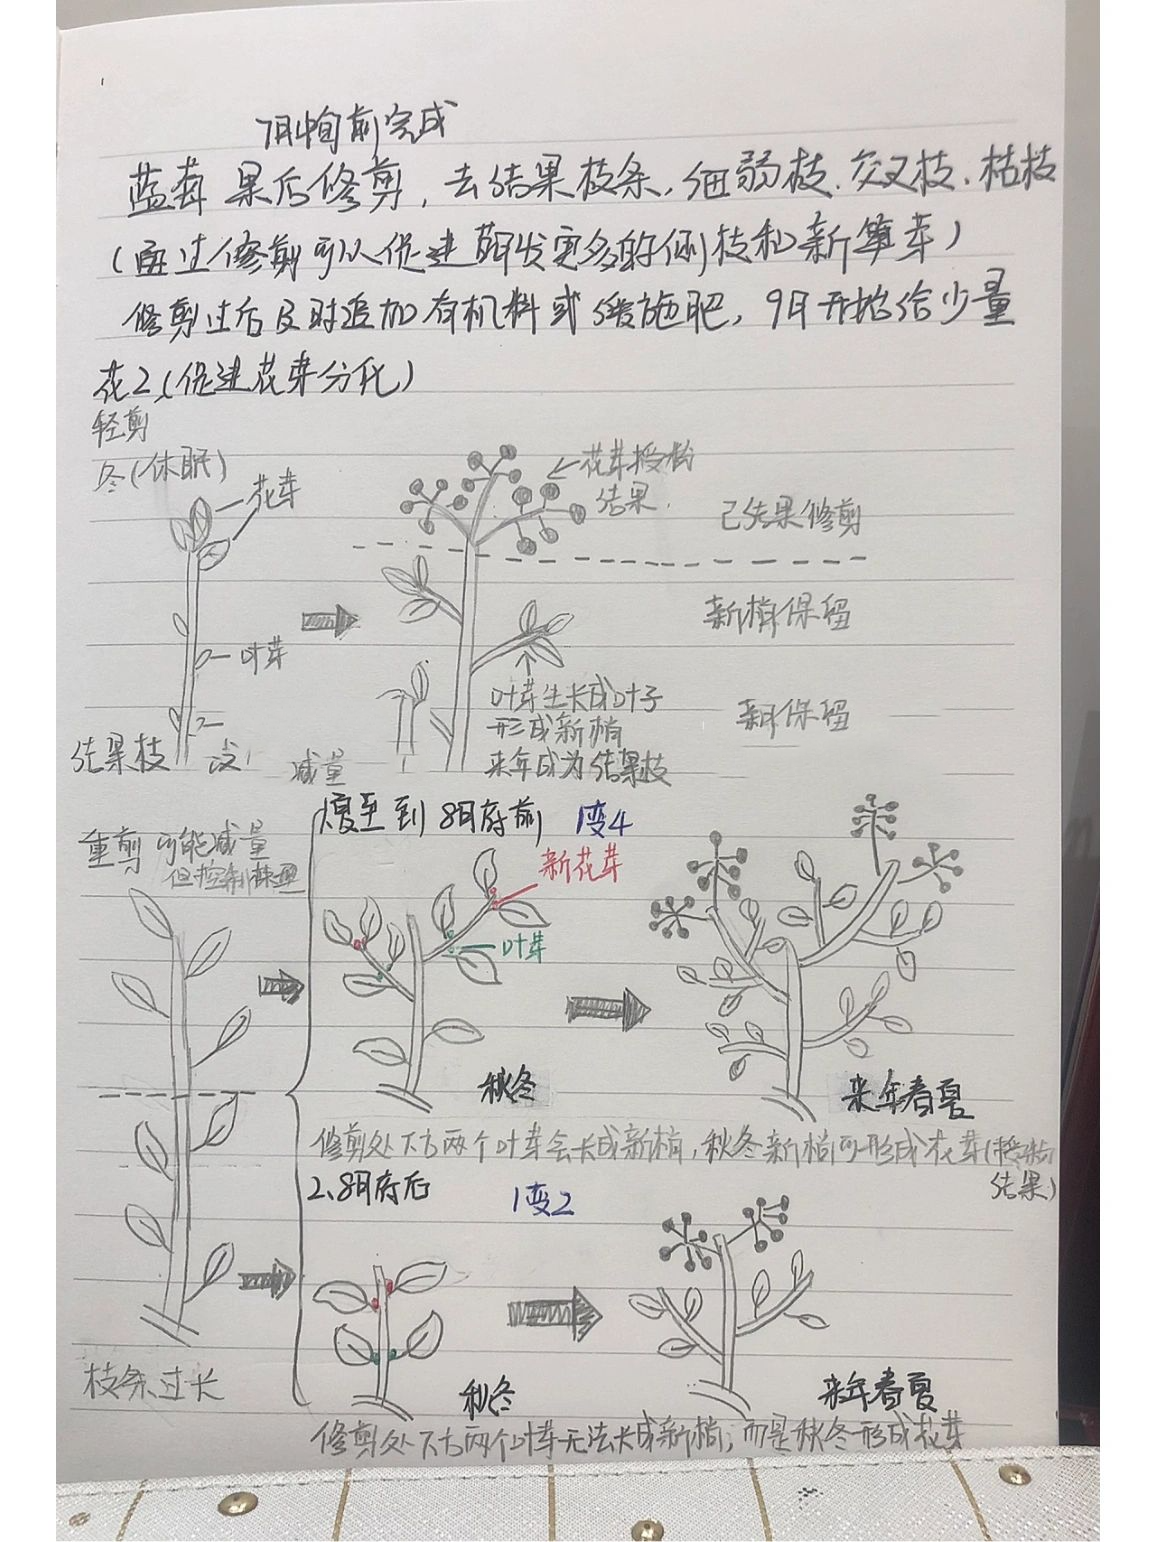 7月中旬前完成
蓝莓果后修剪,去结果枝条,细弱枝、交叉枝、枯枝
(通过修剪可以促进萌发更多的侧枝和新笋芽)
修剪过后及时追加有机料或缓施肥,9月开始给少量
花2(促进花芽分化)
轻剪
冬(休眠)
花芽
←花芽授粉
结果.
已结果修剪
新梢保留
叶芽
叶芽生长成叶子
形成新梢
来年成为结果枝
保留
结果枝
减量
重剪 可能减量
但控制株
夏至到8月府前 1变4
新花芽
叶芽
秋冬
来年春夏
修剪处下方两个叶芽会长成新梢,秋冬新梢可形成花芽(
结果)
2、8月府后 1变2
枝条过长
秋冬
来年春夏
修剪处下方两个叶芽无法长成新梢,而是秋冬形成花芽